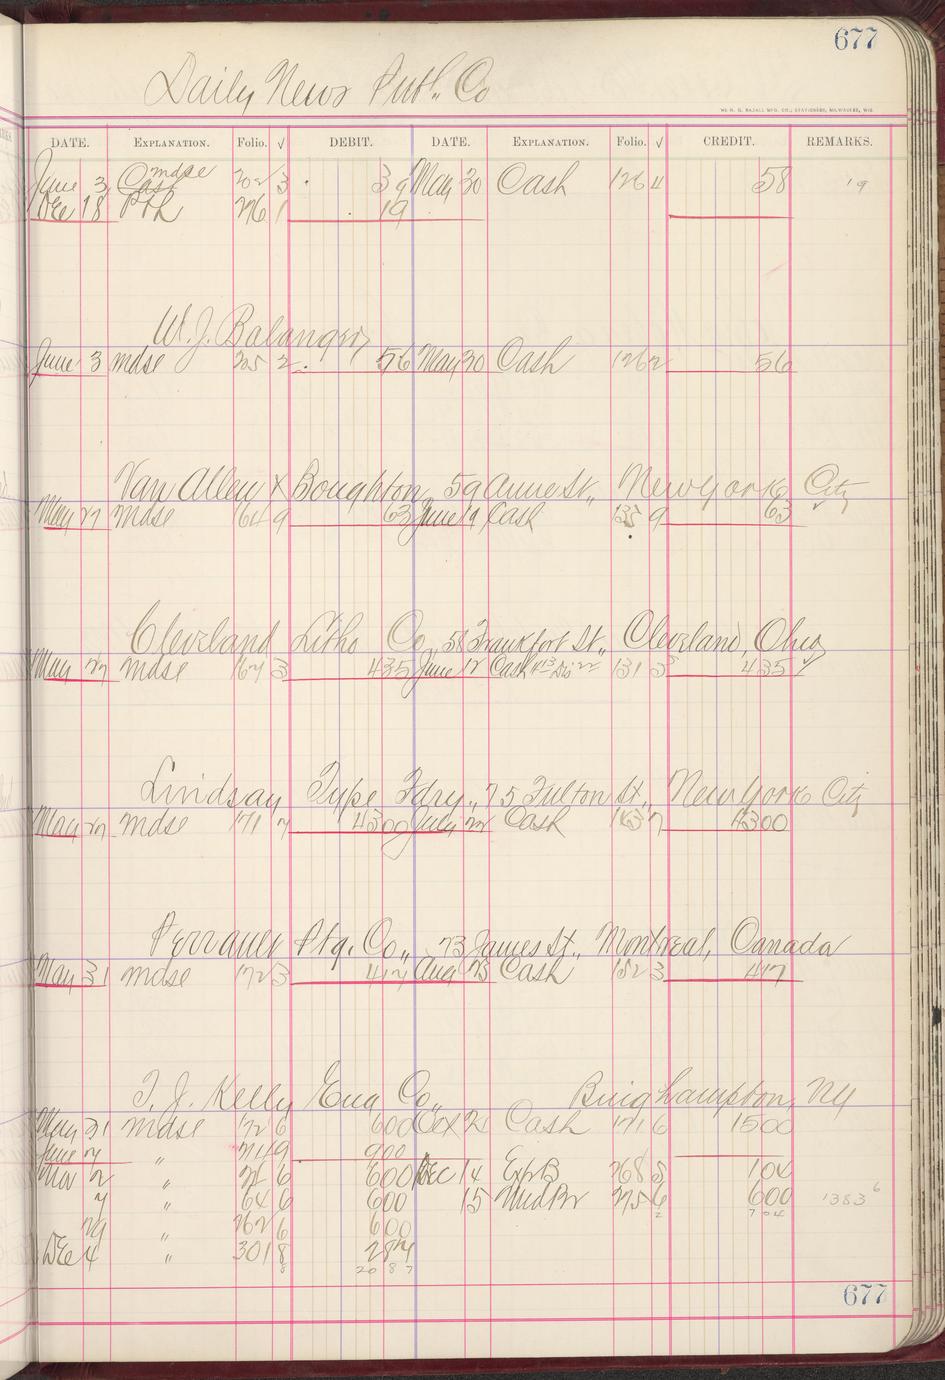 677
Daily News Publ. Co
DATE. EXPLANATION. Folio. √ DEBIT. DATE. EXPLANATION. Folio. √ CREDIT. REMARKS.
June 3 mdse 202 3 39 May 30 Cash 126 4 58 19
Dec 18 276 1 19
W. J. Balanger
June 3 mdse 225 2 56 May 30 Cash 126 2 56
Van Allen & Boughton, 59 Anne St., New York City
May 27 mdse 164 9 63 June 19 Cash 135 9 63
Cleveland Litho Co., 58 Frankfort St., Cleveland, Ohio
May 27 mdse 167 3 435 June 12 Cash 131 3 435
Lindsay Type Fdry., 75 Fulton St., New York City
May 27 mdse 171 7 4300 July 22 Cash 7 4300
Perrault Ptg. Co., 73 James St., Montreal, Canada
May 31 mdse 172 3 417 Aug 23 Cash 152 3 417
T. J. Kelly Eng Co., Binghampton, NY
May 31 mdse 172 6 600 Oct 21 Cash 171 6 1500
June 7 " 214 9 900
Nov 2 " 21 6 600 Dec 14 Exp B 268 5 104
7 " 64 6 600 15 275 6 600 1383 6
2 704
29 " 262 6 600
Dec 4 " 301 8 287
8 2087
677